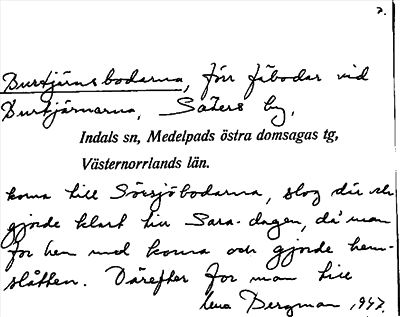 7.
Burtjärnsbodarna, förr fäbodar vid
Burtjärnarna, Säters by,
Indals sn, Medelpads östra domsagas tg,
Västernorrlands län.
korna till Sörsjöbodarna, slog där och
gjorde klart till Sara-dagen, då man
for hem med korna och gjorde hem-
slåtten. Därefter for man till
Lena Bergman, 1947.